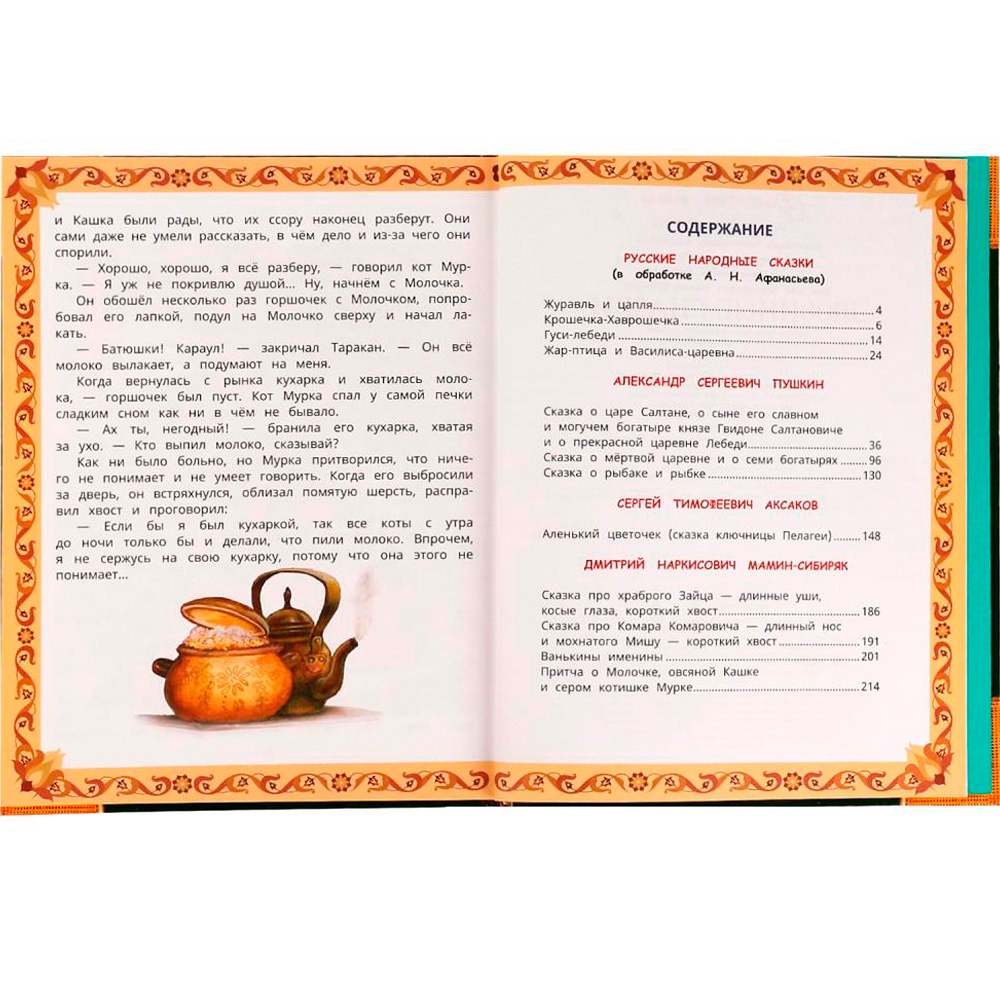 и Кашка были рады, что их ссору наконец разберут. Они
сами даже не умели рассказать, в чём дело и из-за чего они
спорили.
— Хорошо, хорошо, я всё разберу, — говорил кот Мур-
ка. — Я уж не покривлю душой... Ну, начнём с Молочка.
Он обошёл несколько раз горшочек с Молочком, попро-
бовал его лапкой, подул на Молочко сверху и начал ла-
кать.
— Батюшки! Караул! — закричал Таракан. — Он всё
молоко вылакает, а подумают на меня.
Когда вернулась с рынка кухарка и хватилась моло-
ка, — горшочек был пуст. Кот Мурка спал у самой печки
сладким сном как ни в чём не бывало.
— Ах ты, негодный! — бранила его кухарка, хватая
за ухо. — Кто выпил молоко, сказывай?
Как ни было больно, но Мурка притворился, что ниче-
го не понимает и не умеет говорить. Когда его выбросили
за дверь, он встряхнулся, облизал помятую шерсть, распра-
вил хвост и проговорил:
— Если бы я был кухаркой, так все коты с утра
до ночи только бы и делали, что пили молоко. Впрочем,
я не сержусь на свою кухарку, потому что она этого не
понимает...
СОДЕРЖАНИЕ
РУССКИЕ НАРОДНЫЕ СКАЗКИ
(в обработке А. Н. Афанасьева)
Журавль и цапля 4
Крошечка-Хаврошечка 6
Гуси-лебеди 14
Жар-птица и Василиса-царевна 24
АЛЕКСАНДР СЕРГЕЕВИЧ ПУШКИН
Сказка о царе Салтане, о сыне его славном
и могучем богатыре князе Гвидоне Салтановиче
и о прекрасной царевне Лебеди 36
Сказка о мёртвой царевне и о семи богатырях 96
Сказка о рыбаке и рыбке 130
СЕРГЕЙ ТИМОФЕЕВИЧ АКСАКОВ
Аленький цветочек (сказка ключницы Пелагеи) 148
ДМИТРИЙ НАРКИСОВИЧ МАМИН-СИБИРЯК
Сказка про храброго Зайца — длинные уши,
косые глаза, короткий хвост 186
Сказка про Комара Комаровича — длинный нос
и мохнатого Мишу — короткий хвост 191
Ванькины именины 201
Притча о Молочке, овсяной Кашке
и сером котишке Мурке 214